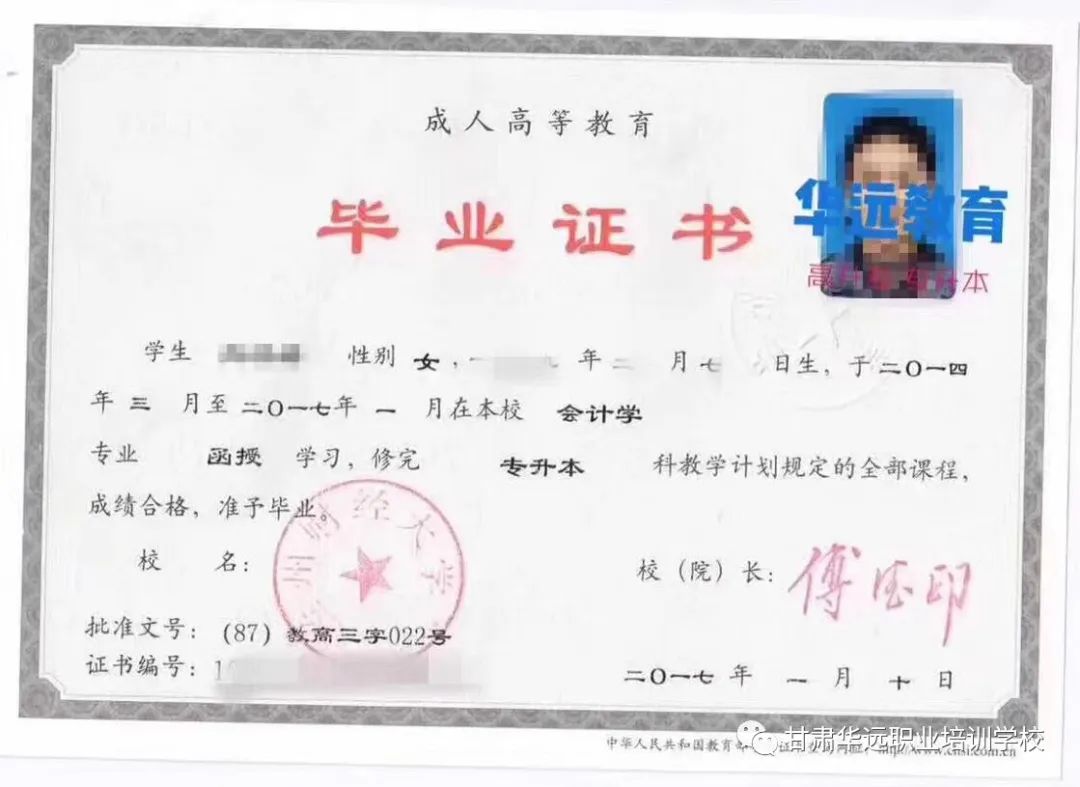 成人高等教育
毕业证书
华远教育
高升专 专升本
学生 性别 女, 年 二 月 七 日生, 于 二〇一四
年 三 月至 二〇一七年 一 月在本校 会计学
专业 函授 学习, 修完 专升本 科教学计划规定的全部课程,
成绩合格, 准予毕业。
兰州财经大学
校 名:
校 (院) 长: 傅德印
批准文号: (87) 教高三字022号
证书编号: 1
二〇一七 年 一 月 十 日
中华人民共和国教育部
http://www.chsi.com.cn
甘肃华远职业培训学校